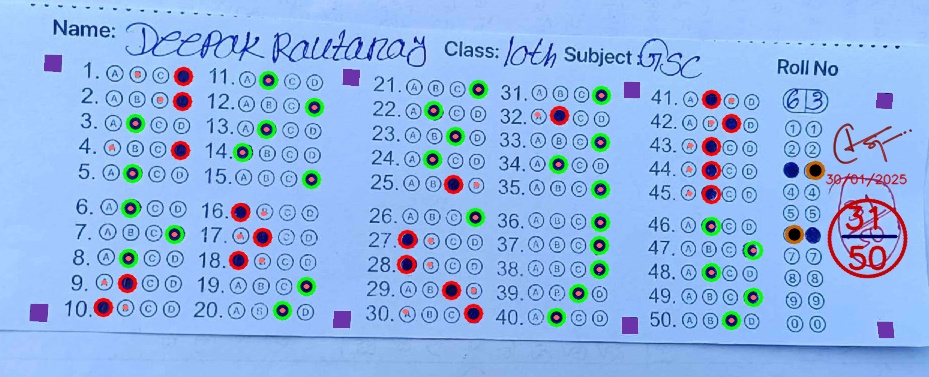 Name: Deepak Rautaray Class: 10th Subject: GSC
Roll No
63
1. A B C
2. A B C
3. A C D
4. A B C
5. A C D
6. A C D
7. A B D
8. A C D
9. A C D
10. B C D
11. A C D
12. A B C
13. A C D
14. B C D
15. A B C
16. B C D
17. A C D
18. B C D
19. A B C
20. A B D
21. A B C
22. A C D
23. A B D
24. A C D
25. A B D
26. A B C
27. B C D
28. B C D
29. A B D
30. A B C
31. A B C
32. A C D
33. A B C
34. A C D
35. A B C
36. A B C
37. A B C
38. A B C
39. A B D
40. A C D
41. A C D
42. A B D
43. A C D
44. A C D
45. A C D
46. A C D
47. A B C
48. A C D
49. A B C
50. A B D
1 1
2 2
4 4
5 5
7 7
8 8
9 9
0 0
30/01/2025
31
50